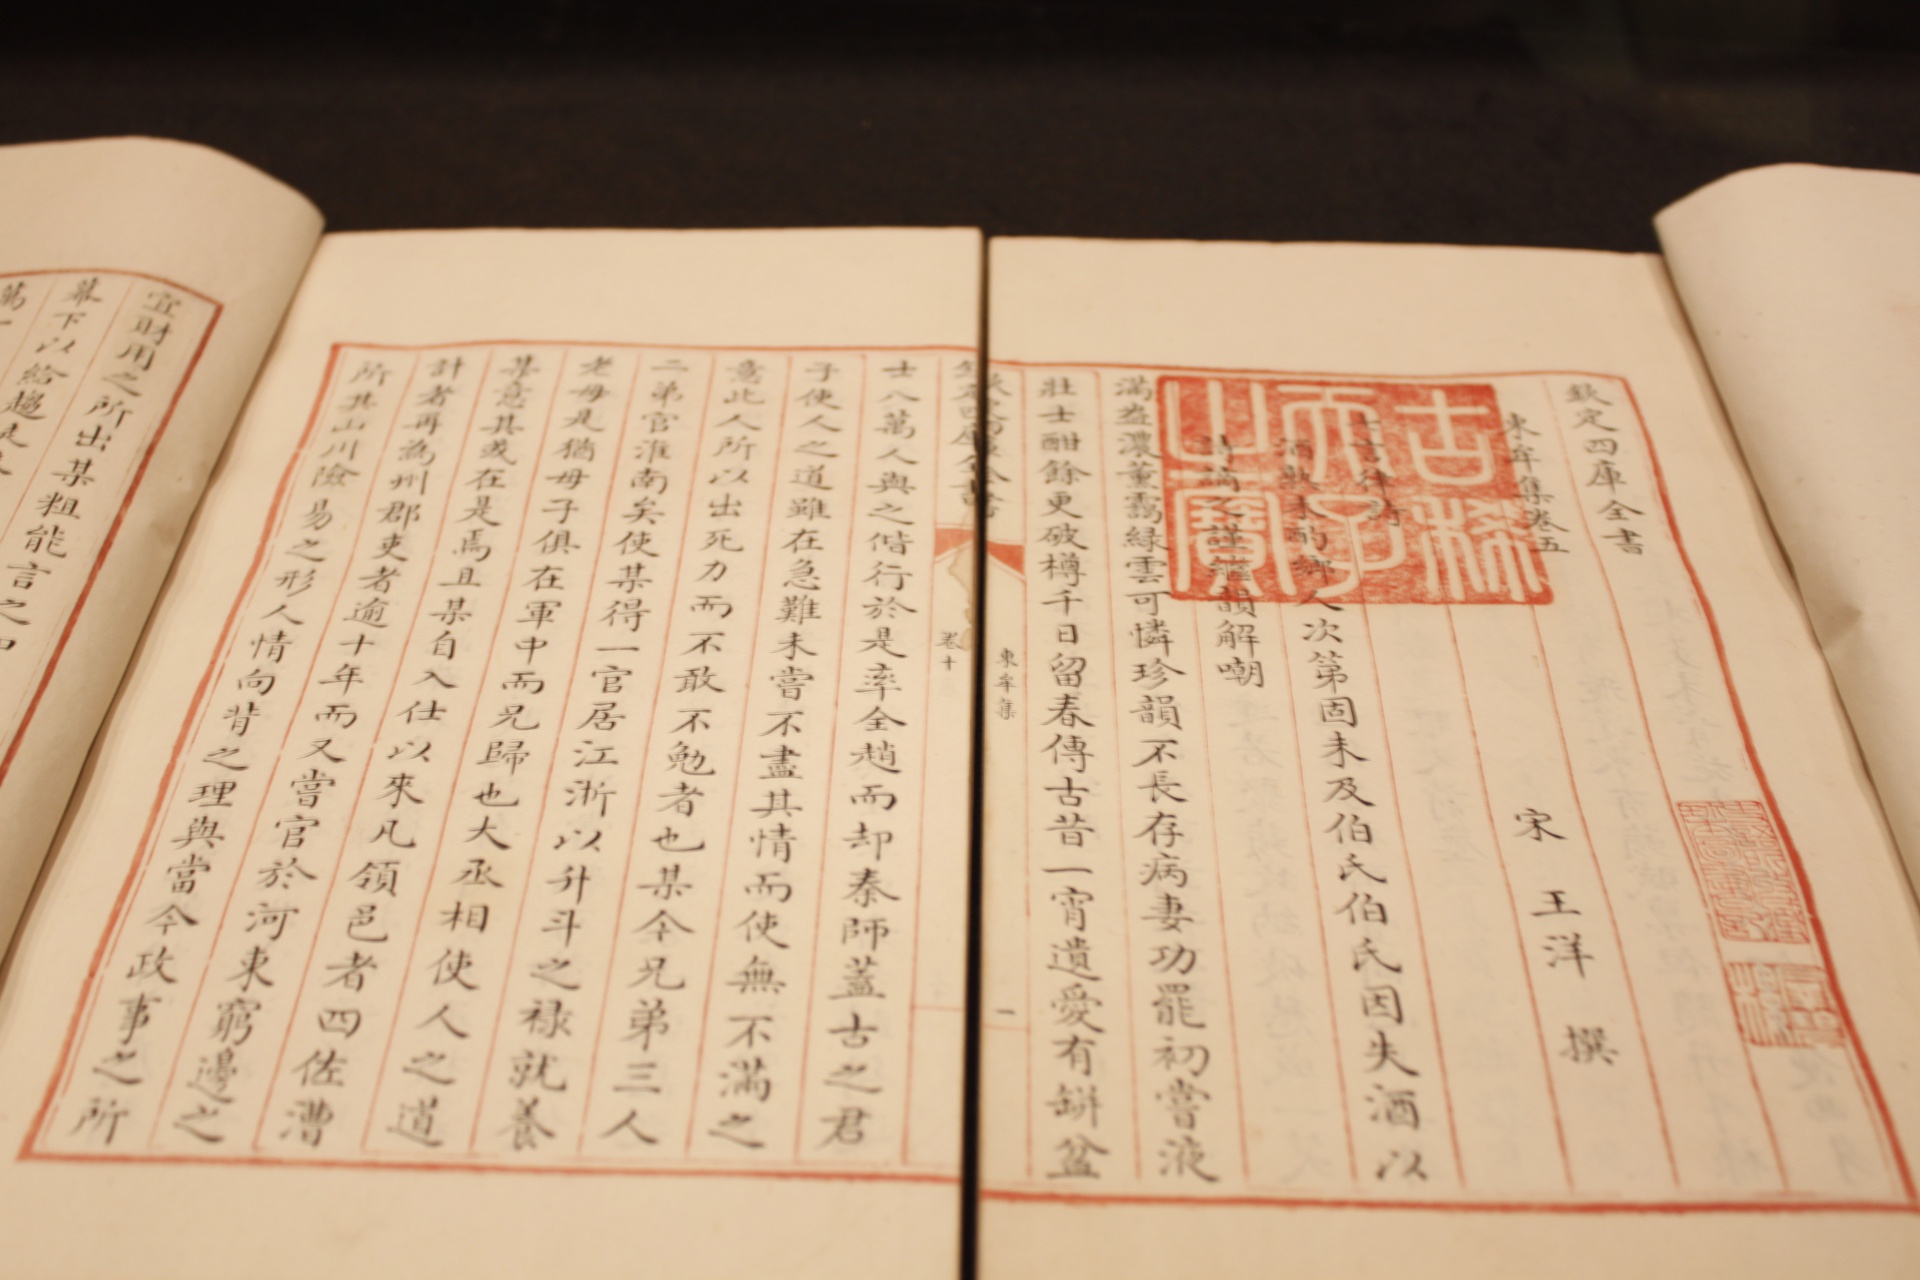 欽定四庫全書
東牟集卷五
宋 王洋 撰
七言律詩
酒熟未酌鄉人次第固未及伯氏伯氏因失酒以
詩誚之謹繼韻解嘲
滿盎濃薰靄緑雲可憐珍韻不長存病妻功罷初嘗液
壯士酣餘更破樽千日留春傳古昔一宵遺愛有缾盆
古稀天子之寶
東牟集
一
欽定四庫全書
卷十
士八萬人與之偕行於是率全趙而却秦師蓋古之君
子使人之道雖在急難未嘗不盡其情而使無不滿之
意此人所以出死力而不敢不勉者也某今兄弟三人
二弟官淮南矣使某得一官居江淅以升斗之禄就養
老母是猶母子俱在軍中而兄歸也大丞相使人之道
某意其或在是焉且某自入仕以來凡領邑者四佐漕
計者再為州郡吏者逾十年而又嘗官於河東窮邊之
所其山川險易之形人情向背之理與當今政事之所
宜財用之所出某粗能言之
幕下以給趨
萬一